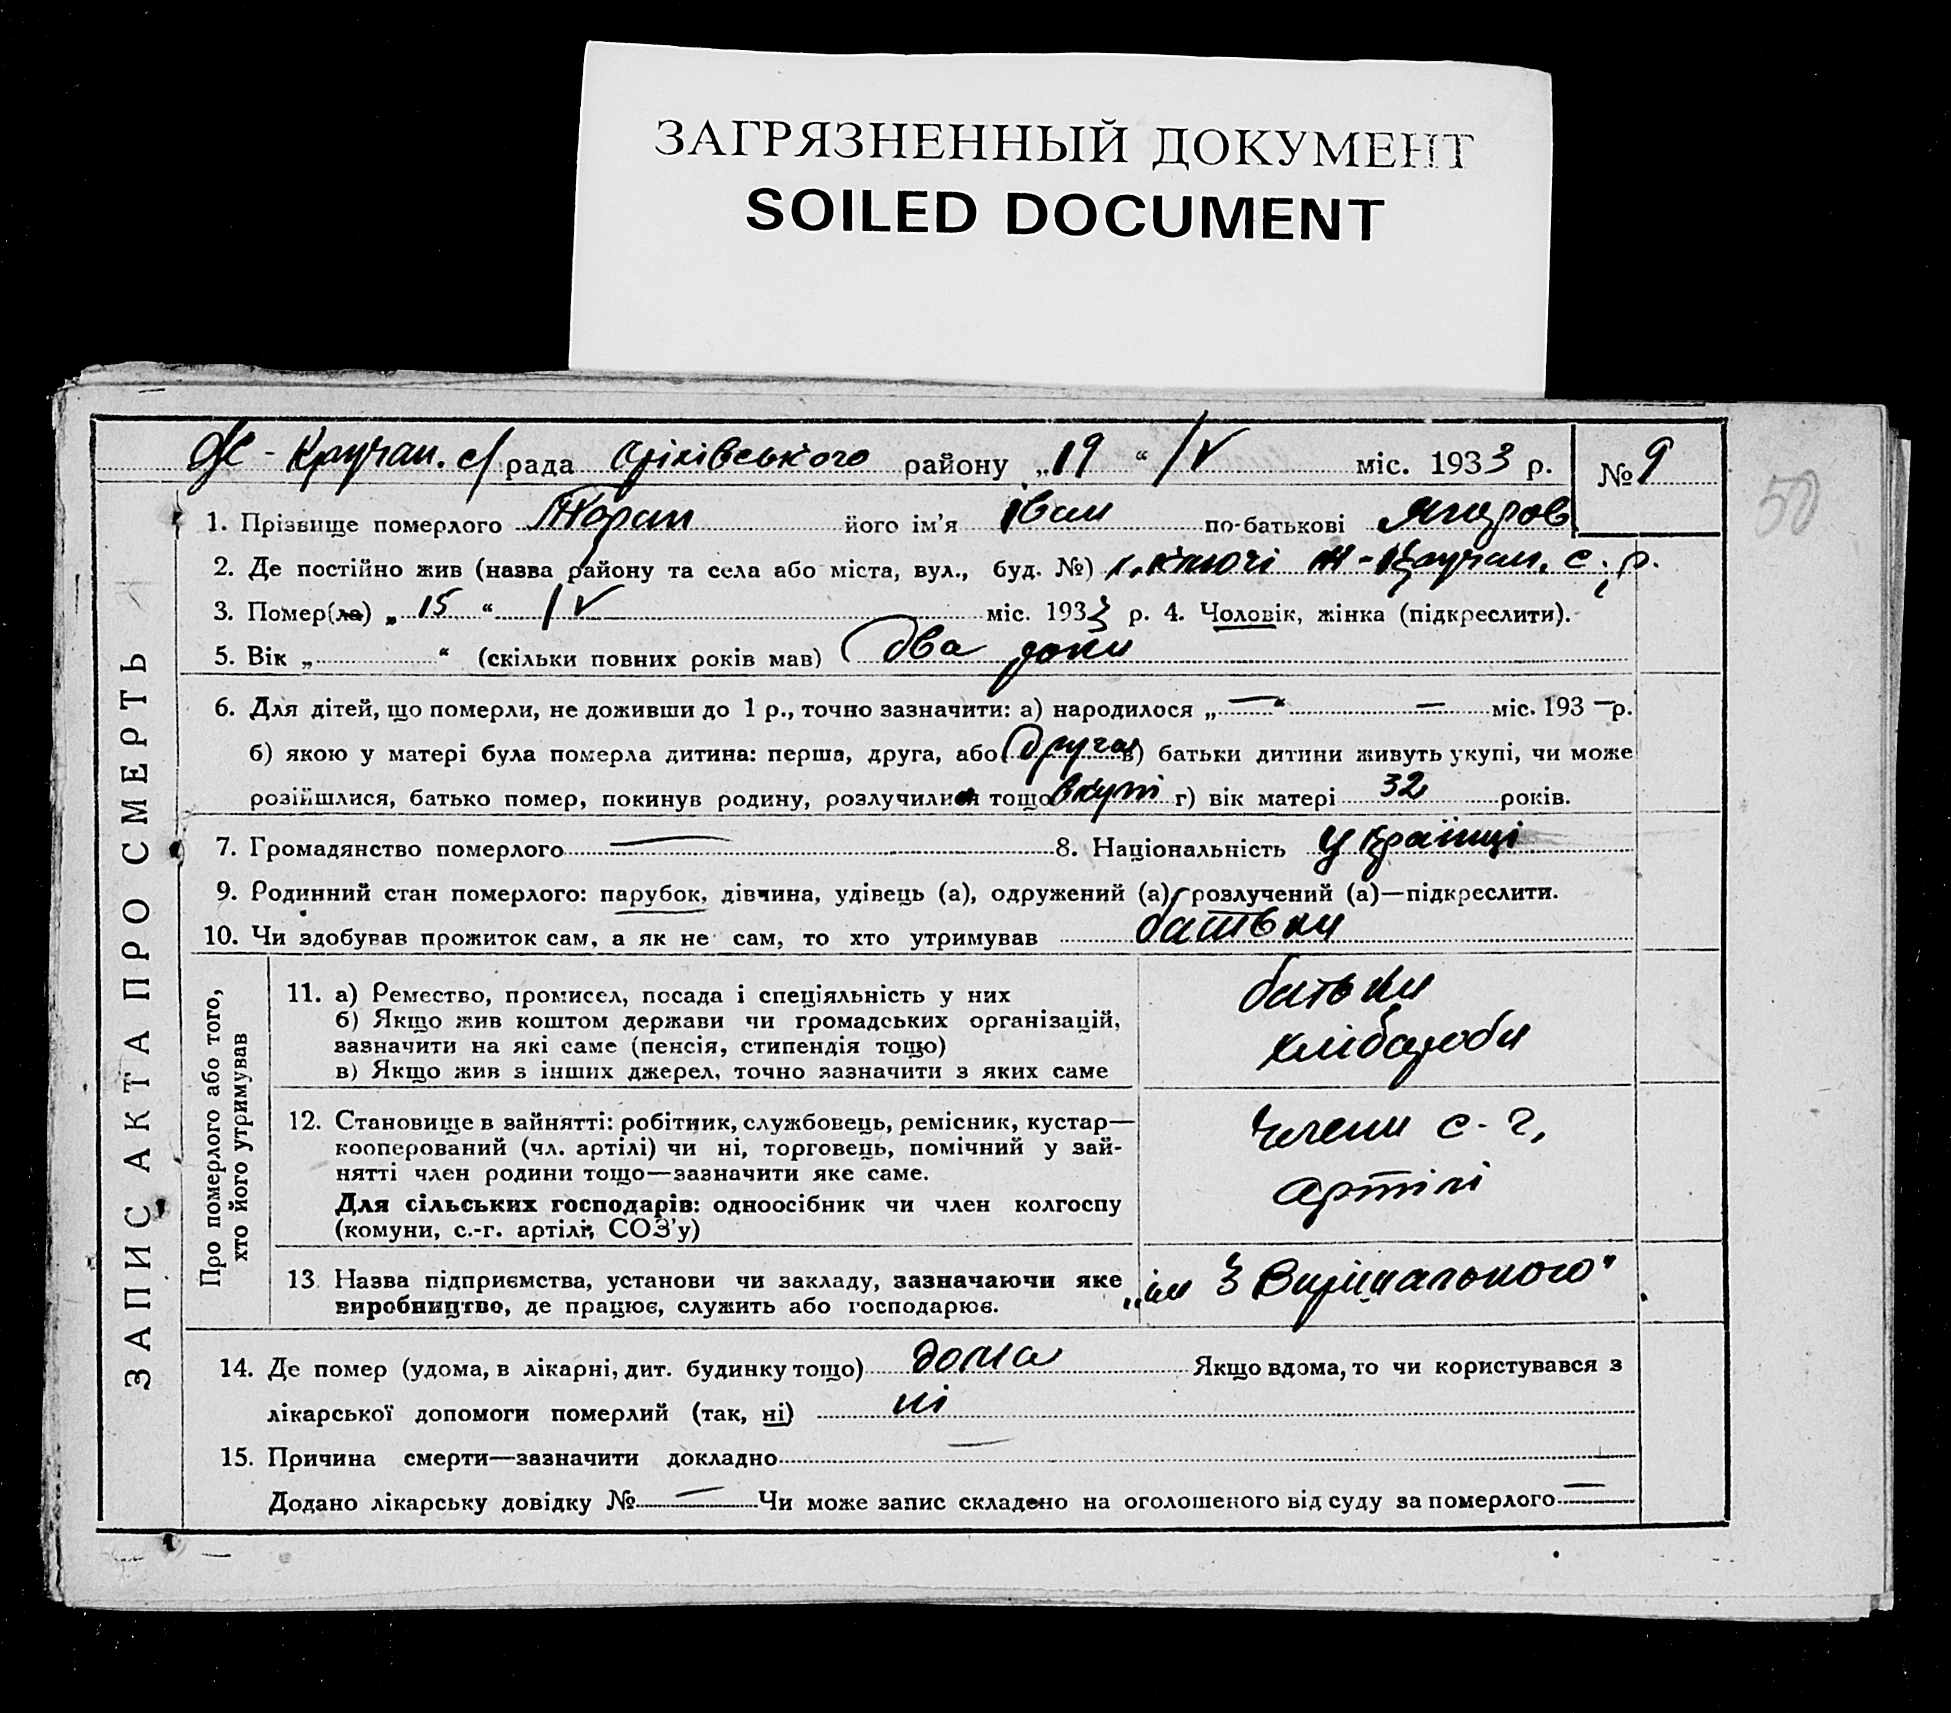 ЗАГРЯЗНЕННЫЙ ДОКУМЕНТ
SOILED DOCUMENT
Ж-Кручан. с/рада Оріхівського району „19“ IV міс. 1933 р. № 9
50
ЗАПИС АКТА ПРО СМЕРТЬ
1. Прізвище померлого його ім'я Іван по-батькові
2. Де постійно жив (назва району та села або міста, вул., буд. №) Ж-Кручан. с. р.
3. Помер(ла) „15“ IV міс. 1933 р. 4. Чоловік, жінка (підкреслити).
5. Вік „ “ (скільки повних років мав) два роки
6. Для дітей, що померли, не доживши до 1 р., точно зазначити: а) народилося „—“ — міс. 193 — р.
б) якою у матері була померла дитина: перша, друга, або друга в) батьки дитини живуть укупі, чи може
розійшлися, батько помер, покинув родину, розлучилися тощо вкупі г) вік матері 32 років.
7. Громадянство померлого — 8. Національність Українці
9. Родинний стан померлого: парубок, дівчина, удівець (а), одружений (а), розлучений (а)—підкреслити.
10. Чи здобував прожиток сам, а як не сам, то хто утримував батьки
Про померлого або того,
хто його утримував
11. а) Ремество, промисел, посада і спеціяльність у них
б) Якщо жив коштом держави чи громадських організацій,
зазначити на які саме (пенсія, стипендія тощо)
в) Якщо жив з інших джерел, точно зазначити з яких саме
батьки
хлібороби
12. Становище в зайнятті: робітник, службовець, ремісник, кустар—
кооперований (чл. артілі) чи ні, торговець, помічний у зай-
нятті член родини тощо—зазначити яке саме.
Для сільських господарів: одноосібник чи член колгоспу
(комуни, с.-г. артілі, СОЗ'у)
члени с-г.
артілі
13. Назва підприємства, установи чи закладу, зазначаючи яке
виробництво, де працює, служить або господарює.
„ім 3 Вирішального"
14. Де помер (удома, в лікарні, дит. будинку тощо) дома Якщо вдома, то чи користувався з
лікарської допомоги померлий (так, ні) ні
15. Причина смерти—зазначити докладно —
Додано лікарську довідку № — Чи може запис складено на оголошеного від суду за померлого —